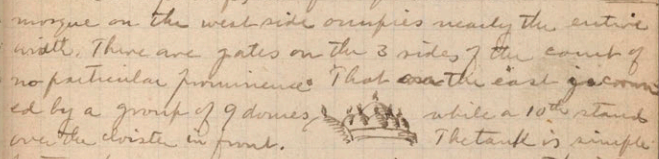 mosque on the west side occupies nearly the entire
width. There are gates on the 3 sides of the court of
no particular prominence. That on the east is crown
ed by a group of 9 domes, while a 10th stands
over the cloister in front. The tank is simple